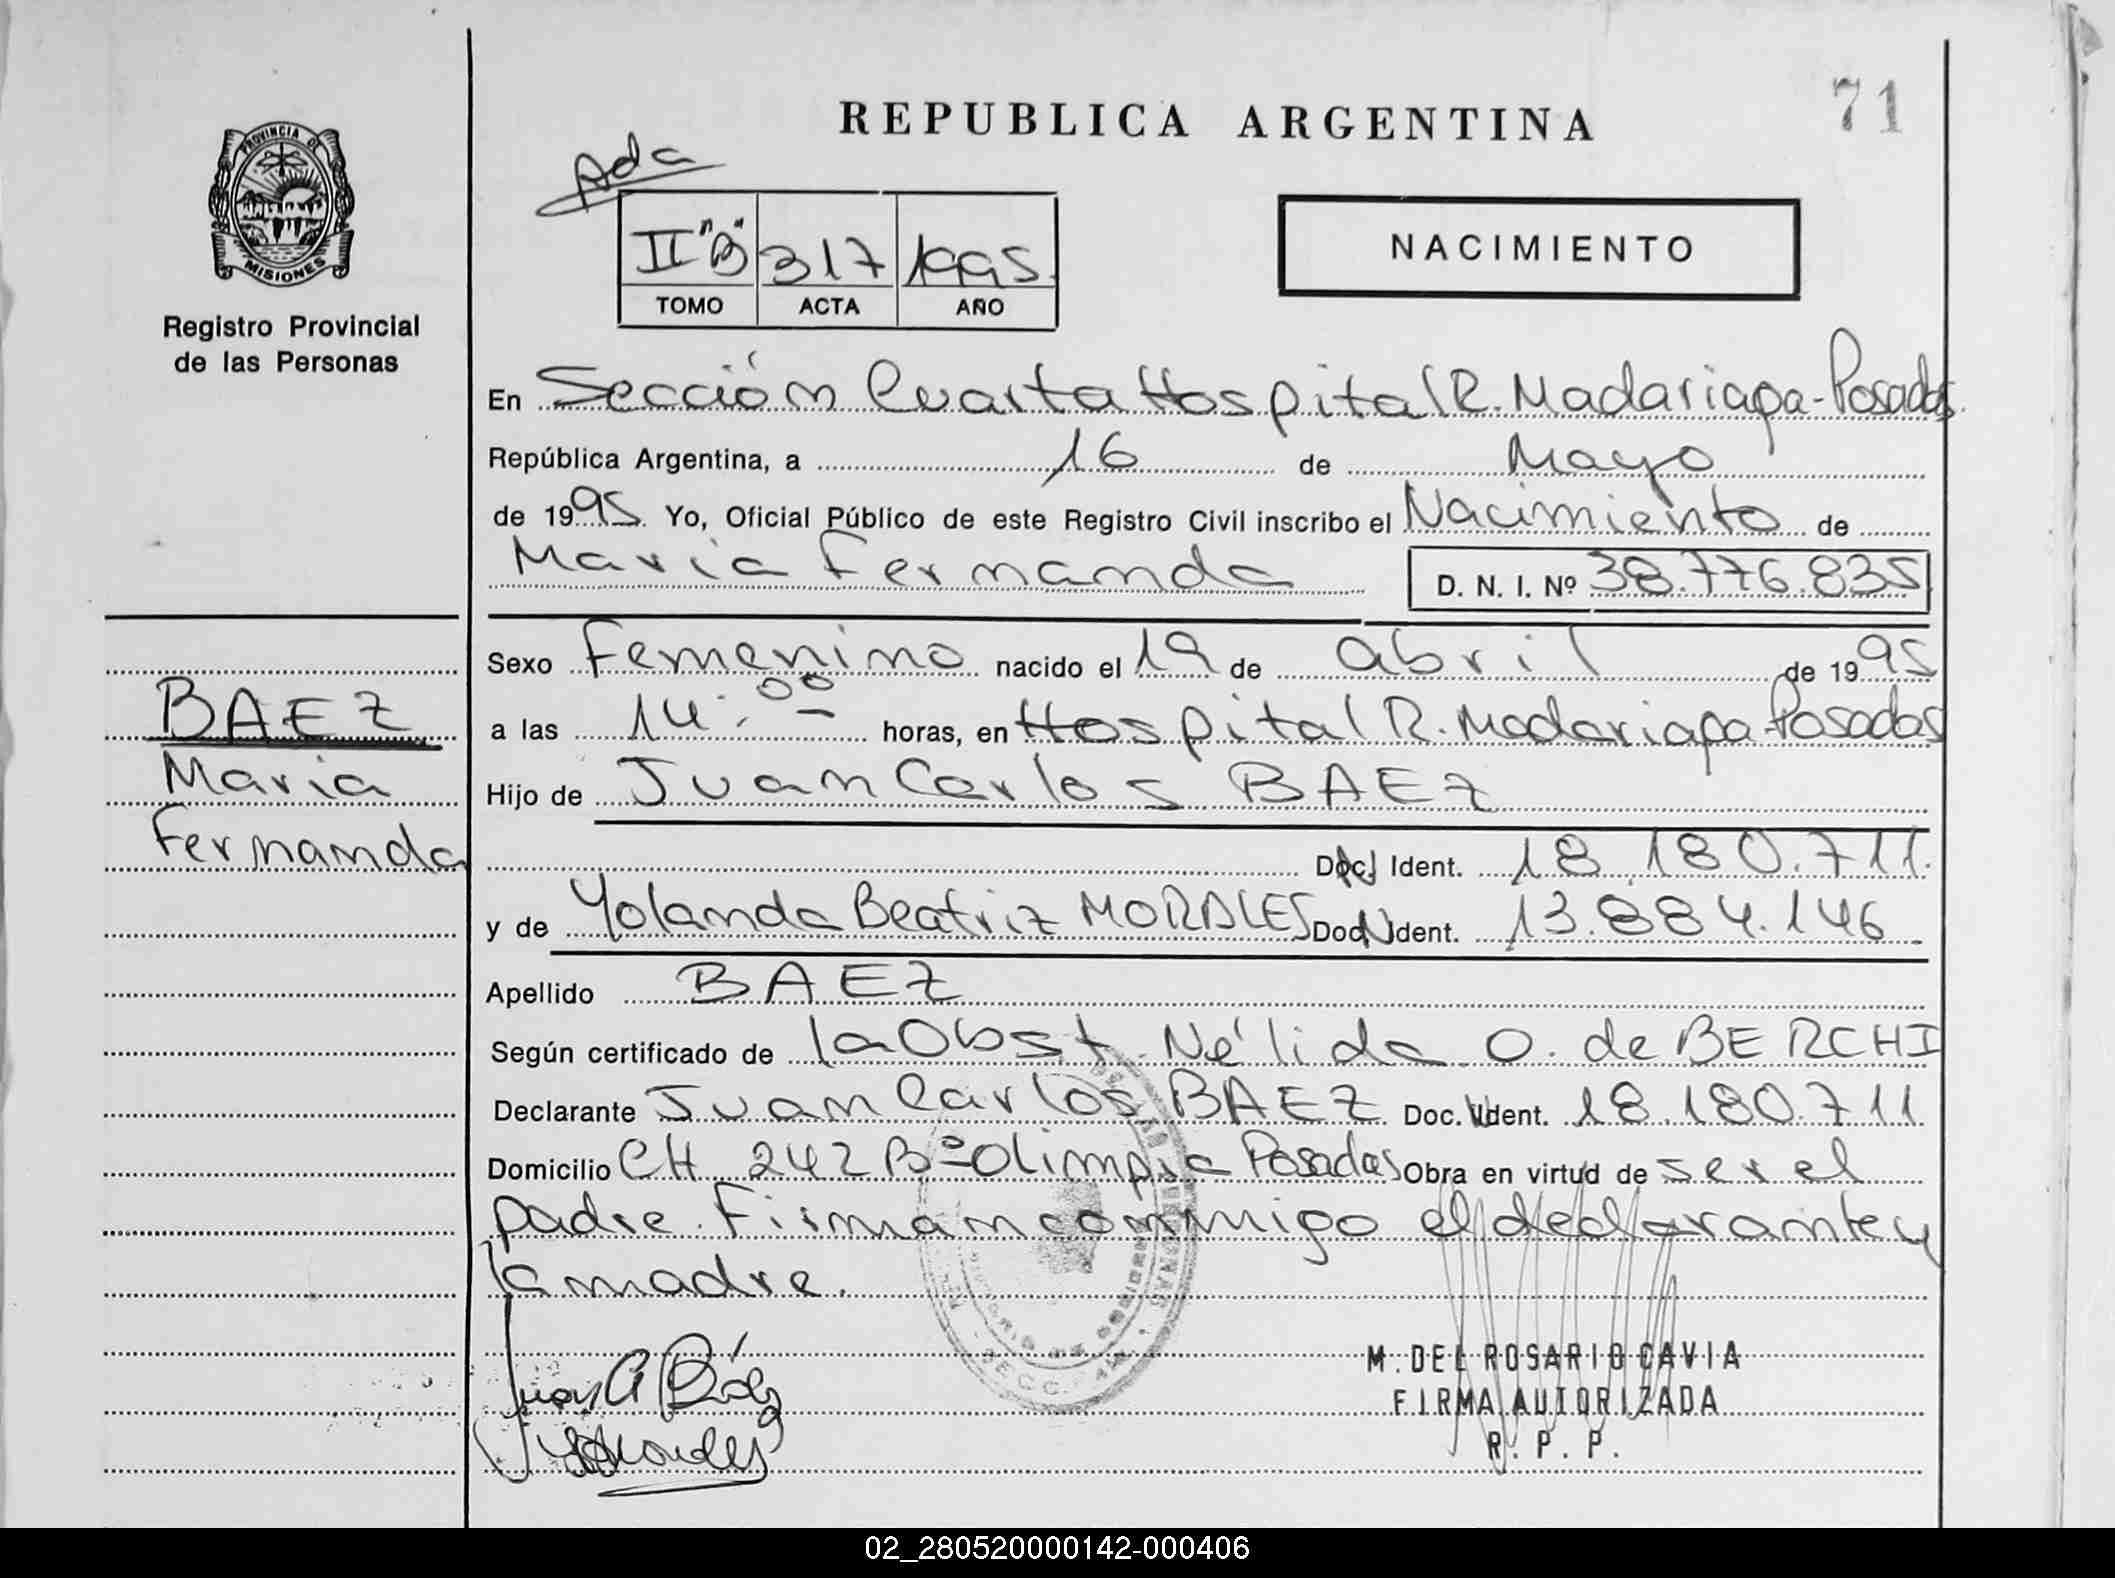 71
REPUBLICA ARGENTINA
PROVINCIA DE
MISIONES
Registro Provincial
de las Personas
Ada
II "B" 317 1995
TOMO ACTA AÑO
NACIMIENTO
En Sección Cuarta Hospital R. Madariaga - Posadas
República Argentina, a 16 de Mayo
de 1995. Yo, Oficial Público de este Registro Civil inscribo el Nacimiento de
Maria Fernanda D. N. I. Nº 38.776.835
Sexo Femenino nacido el 19 de abril de 1995
a las 14:00 horas, en Hospital R. Madariaga - Posadas
Hijo de Juan Carlos BAEZ
Doc. Ident. 18.180.711.
y de Yolanda Beatriz MORALES Doc. Ident. 13.884.146
Apellido BAEZ
Según certificado de la Obst. Nélida O. de BERCHI
Declarante Juan Carlos BAEZ Doc. Ident. 18.180.711
Domicilio CH 242 Bº Olimpia Posadas Obra en virtud de ser el
padre. Firman conmigo el declarante y
la madre.
BAEZ
Maria
Fernanda
Juan C Báez
M. DEL ROSARIO CAVIA
FIRMA AUTORIZADA
R. P. P.
02_280520000142-000406